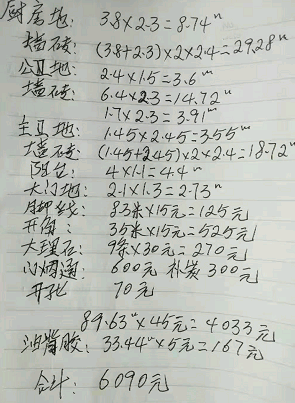 厨房地: 3.8×2.3=8.74㎡
墙砖: (3.8+2.3)×2×2.4=29.28㎡
公卫地: 2.4×1.5=3.6㎡
墙砖: 6.4×2.3=14.72㎡
1.7×2.3=3.91㎡
主卫地: 1.45×2.45=3.55㎡
墙砖: (1.45+2.45)×2×2.4=18.72㎡
阳台: 4×1.1=4.4㎡
大门地: 2.1×1.3=2.73㎡
角脚线: 83米×15元=125元
开角: 35米×15元=525元
大理石: 9条×30元=270元
烟通: 600元 补炭 300元
开孔 70元
89.63㎡×45元=4033元
油背胶: 33.44㎡×5元=167元
合计: 6090元